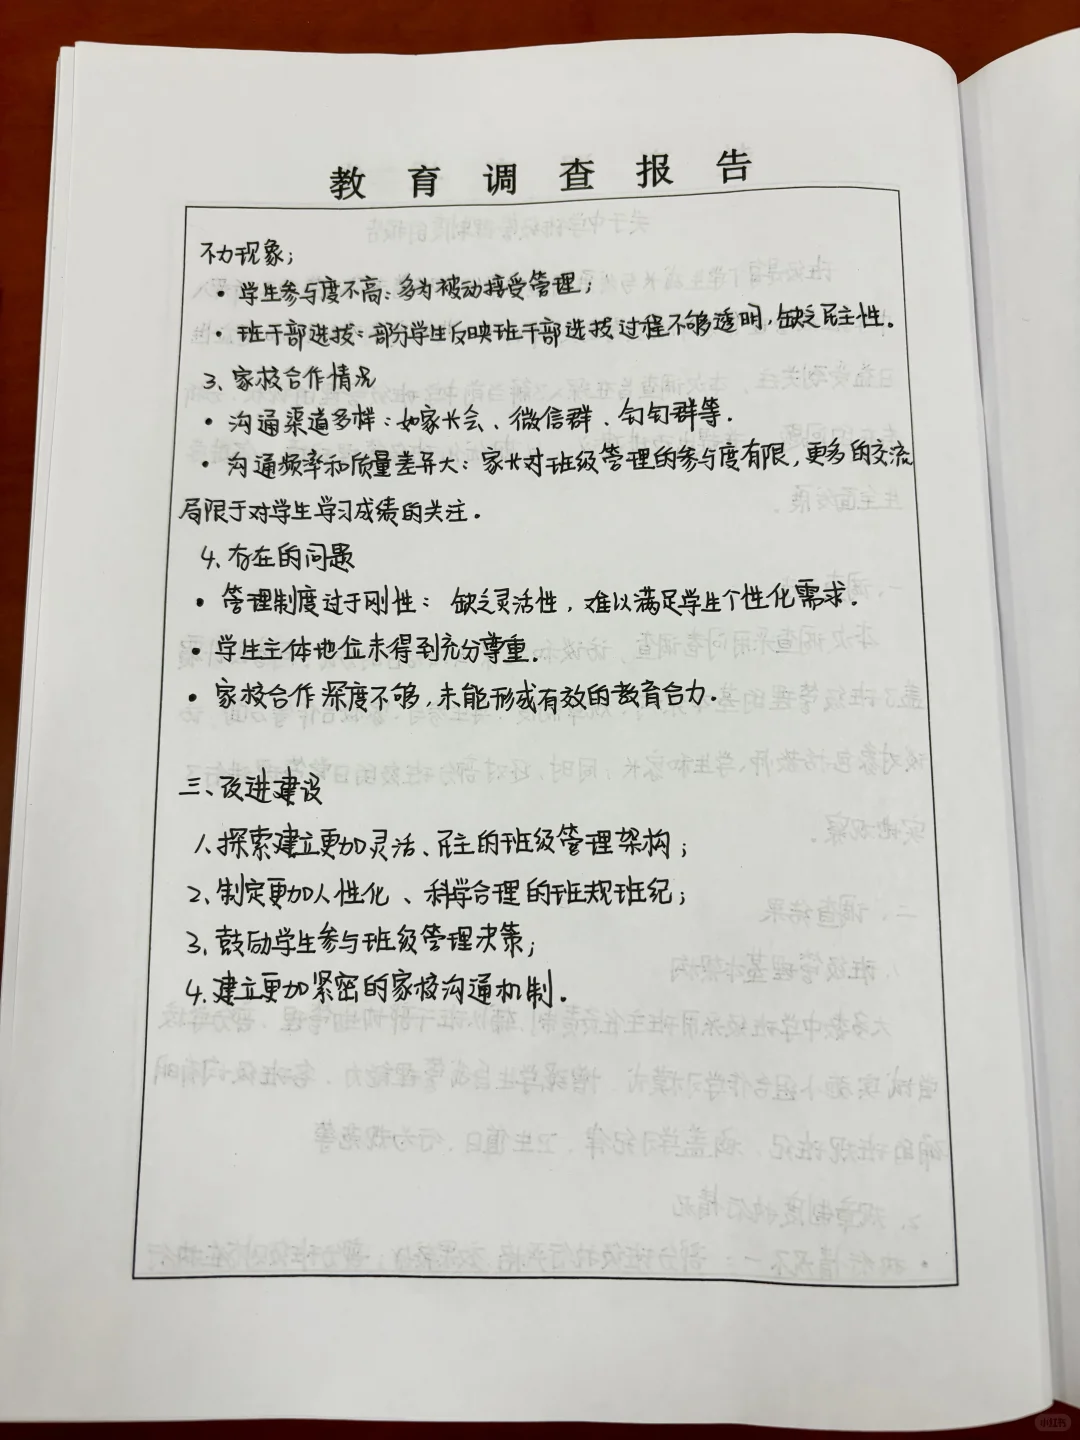 教育调查报告
不力现象；
• 学生参与度不高：多为被动接受管理；
• 班干部选拔：部分学生反映班干部选拔过程不够透明，缺乏民主性。
3. 家校合作情况
• 沟通渠道多样：如家长会、微信群、钉钉群等.
• 沟通频率和质量差异大：家长对班级管理的参与度有限，更多的交流
局限于对学生学习成绩的关注。
4. 存在的问题
• 管理制度过于刚性： 缺乏灵活性，难以满足学生个性化需求。
• 学生主体地位未得到充分尊重.
• 家校合作深度不够，未能形成有效的教育合力.
三、改进建议
1. 探索建立更加灵活、民主的班级管理架构；
2. 制定更加人性化、科学合理的班规班纪；
3. 鼓励学生参与班级管理决策；
4. 建立更加紧密的家校沟通机制.